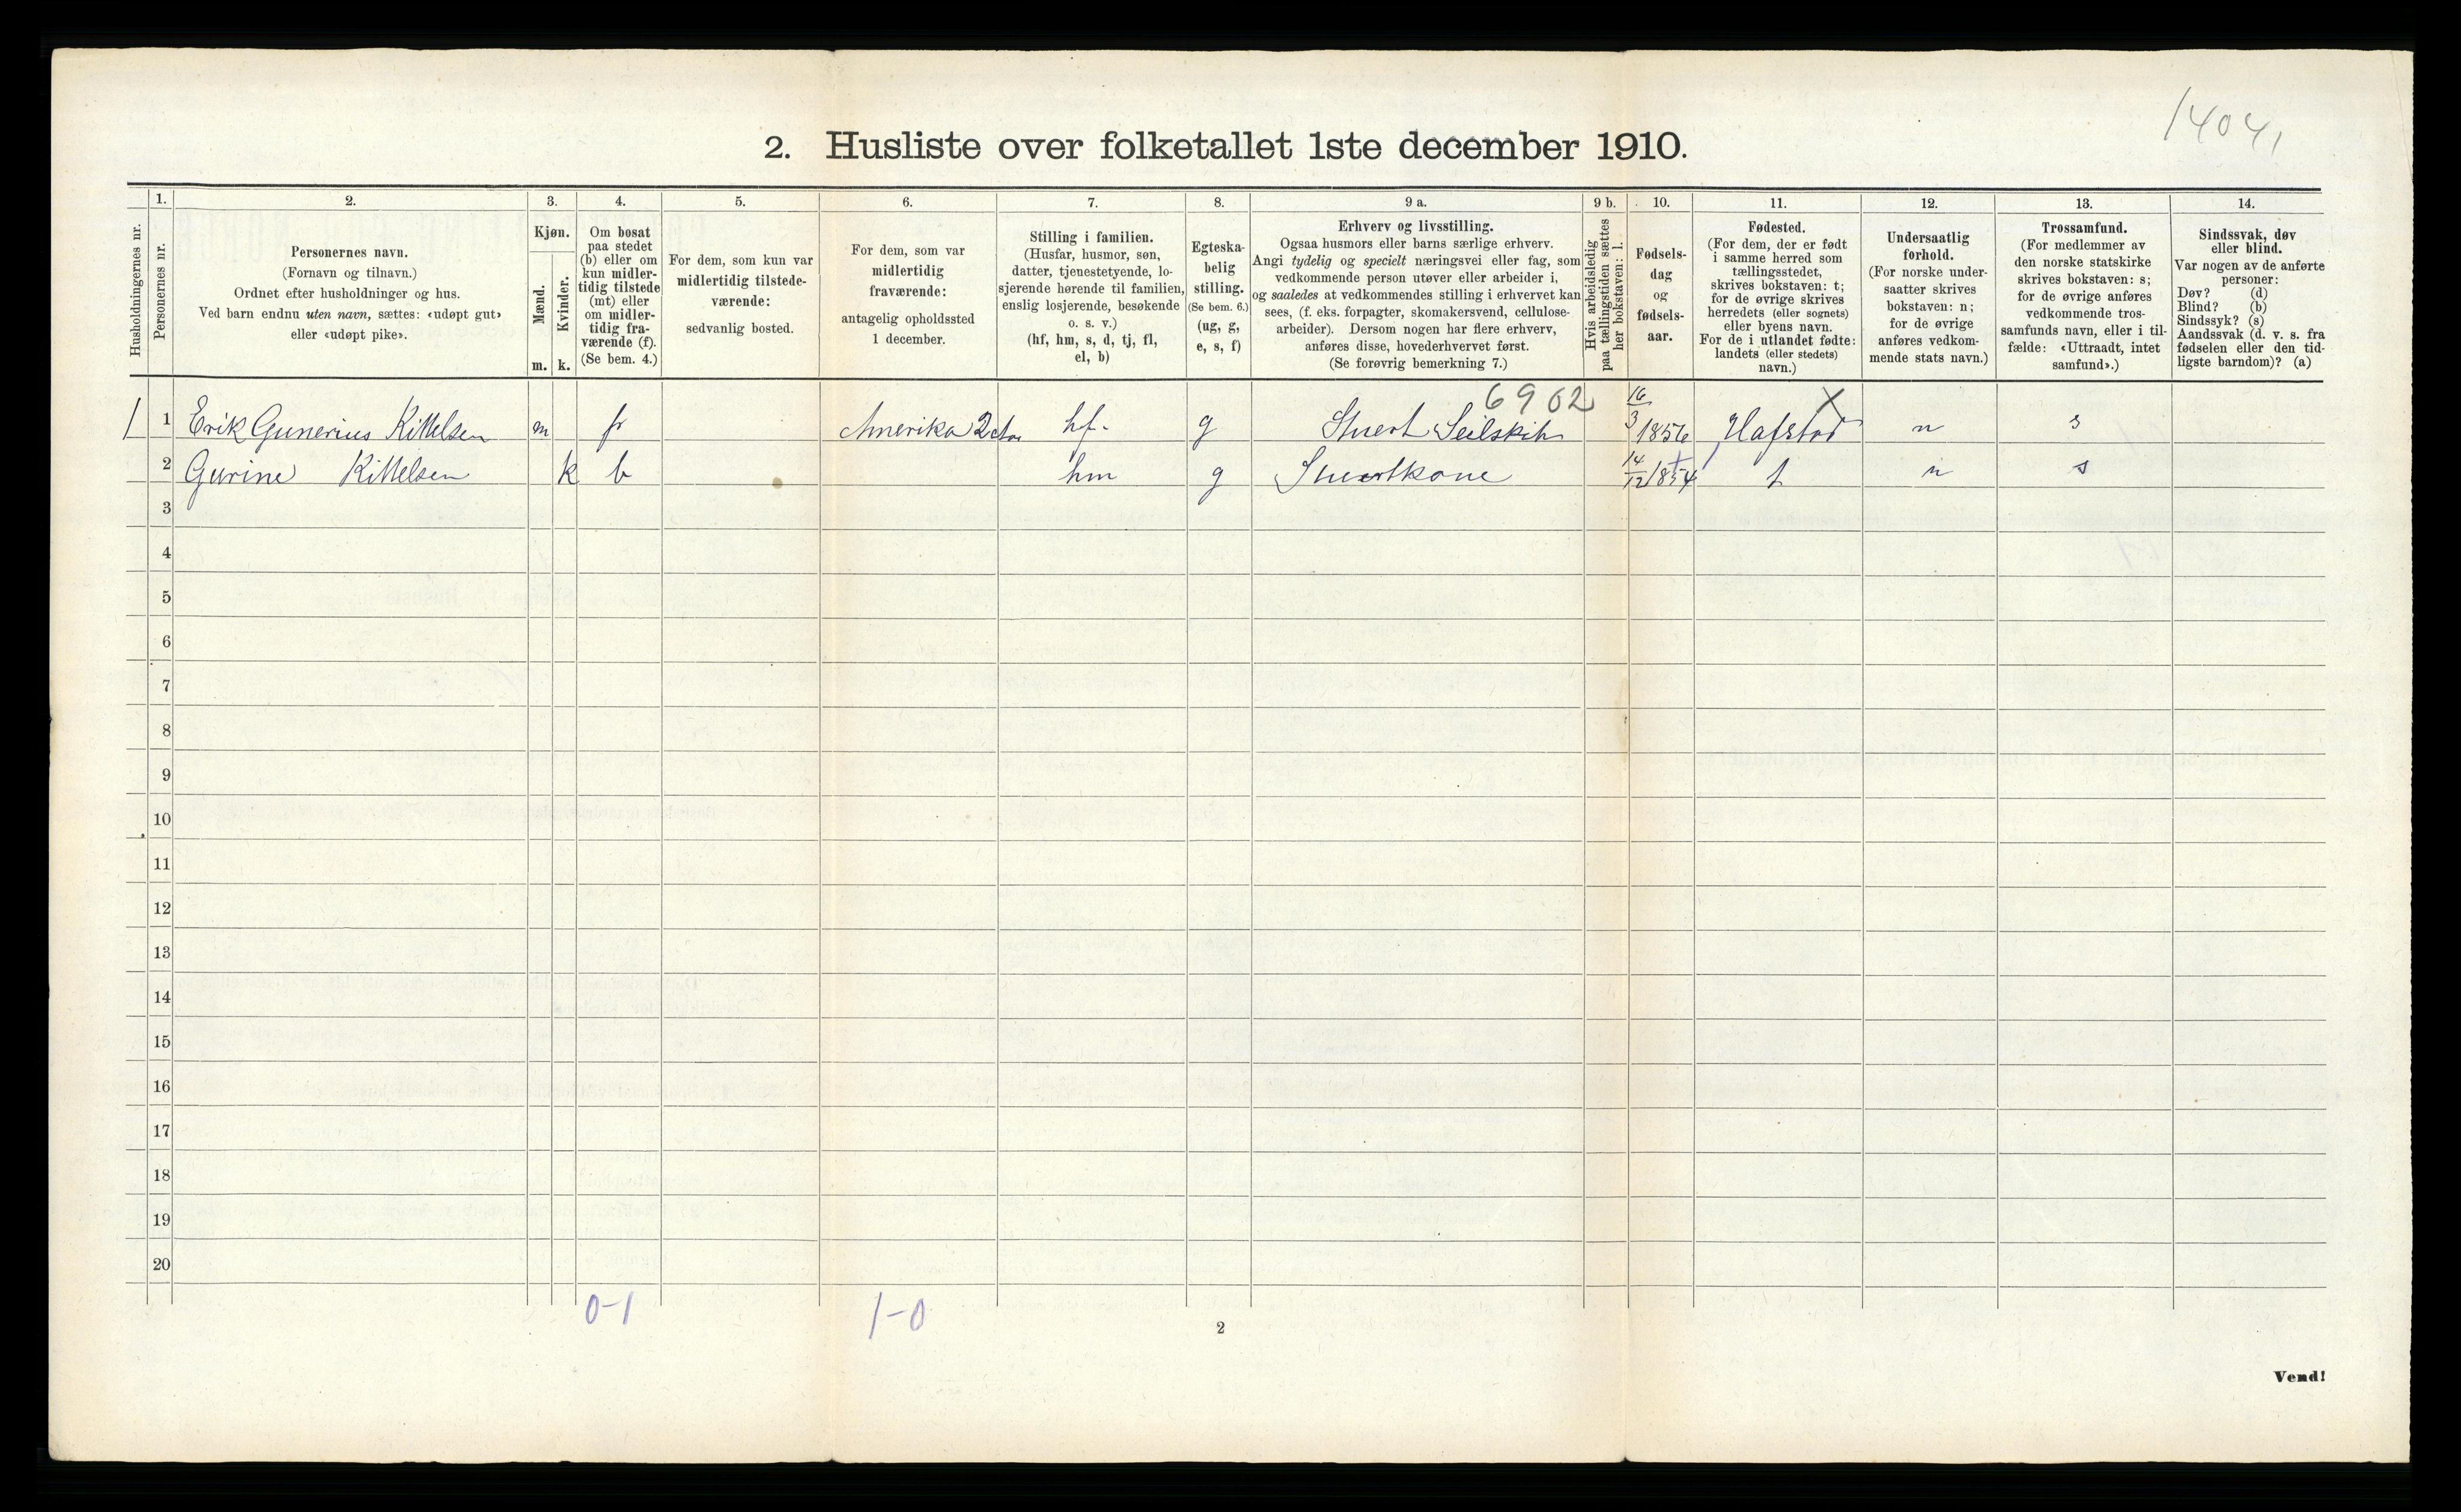 14041
2. Husliste over folketallet 1ste december 1910.
Husholdningernes nr.
1.
Personernes nr.
2.
Personernes navn.
(Fornavn og tilnavn.)
Ordnet efter husholdninger og hus.
Ved barn endnu uten navn, sættes: «udøpt gut»
eller «udøpt pike».
3.
Kjøn.
Mænd.
Kvinder.
m. k.
4.
Om bosat
paa stedet
(b) eller om
kun midler-
tidig tilstede
(mt) eller
om midler-
tidig fra-
værende (f).
(Se bem. 4.)
5.
For dem, som kun var
midlertidig tilstede-
værende:
sedvanlig bosted.
6.
For dem, som var
midlertidig
fraværende:
antagelig opholdssted
1 december.
7.
Stilling i familien.
(Husfar, husmor, søn,
datter, tjenestetyende, lo-
sjerende hørende til familien,
enslig losjerende, besøkende
o. s. v.)
(hf, hm, s, d, tj, fl,
el, b)
8.
Egteska-
belig
stilling.
(Se bem. 6.)
(ug, g,
e, s, f)
9 a.
Erhverv og livsstilling.
Ogsaa husmors eller barns særlige erhverv.
Angi tydelig og specielt næringsvei eller fag, som
vedkommende person utøver eller arbeider i,
og saaledes at vedkommendes stilling i erhvervet kan
sees, (f. eks. forpagter, skomakersvend, cellulose-
arbeider). Dersom nogen har flere erhverv,
anføres disse, hovederhvervet først.
(Se forøvrig bemerkning 7.)
9 b.
Hvis arbeidsledig
paa tællingstiden sættes
her bokstaven: l.
10.
Fødsels-
dag
og
fødsels-
aar.
11.
Fødested.
(For dem, der er født
i samme herred som
tællingsstedet,
skrives bokstaven: t;
for de øvrige skrives
herredets (eller sognets)
eller byens navn.
For de i utlandet fødte:
landets (eller stedets)
navn.)
12.
Undersaatlig
forhold.
(For norske under-
saatter skrives
bokstaven: n;
for de øvrige
anføres vedkom-
mende stats navn.)
13.
Trossamfund.
(For medlemmer av
den norske statskirke
skrives bokstaven: s;
for de øvrige anføres
vedkommende tros-
samfunds navn, eller i til-
fælde: «Uttraadt, intet
samfund».)
14.
Sindssvak, døv
eller blind.
Var nogen av de anførte
personer:
Døv? (d)
Blind? (b)
Sindssyk? (s)
Aandssvak (d. v. s. fra
fødselen eller den tid-
ligste barndom)? (a)
6902
1 1 Erik Gunerius Kittelsen m fr Amerika hf. g Stuert Seilskib 16/3 1856 Hafstad n s
2 Gurine Kittelsen k b hm g Stuertkone 14/12 1854 t n s
3
4
5
6
7
8
9
10
11
12
13
14
15
16
17
18
19
20
0-1 1-0
2
Vend!